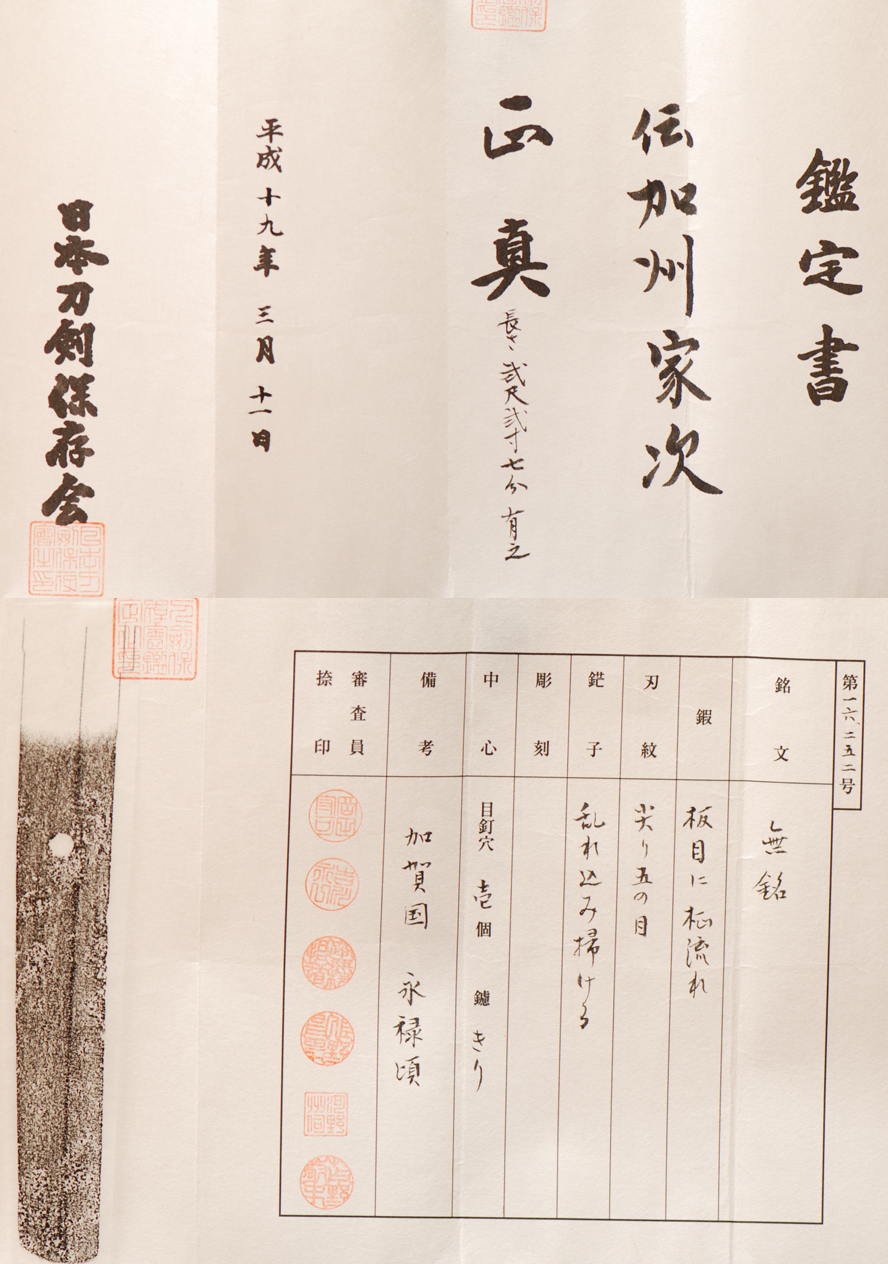 鑑定書
伝加州家次
正真
長さ弐尺弐寸七分有之
平成十九年三月十一日
日本刀剣保存会
第一六、二五二号
銘文
無銘
鍜
板目に柾流れ
刃紋
尖り五の目
鋩子
乱れ込み掃ける
彫刻
中心
目釘穴 壱個 鑢 きり
備考
加賀国 永禄頃
審査員
捺印